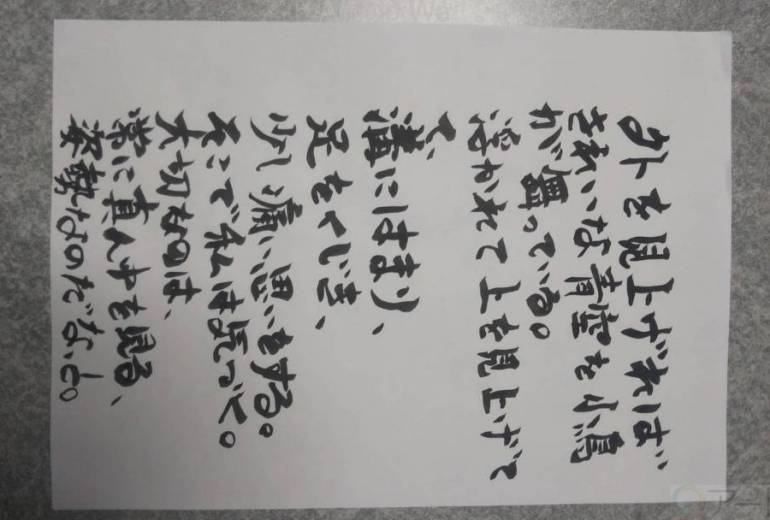 外を見上げれば
きれいな青空を小鳥
が儛っている。
浮かれて上を見上げて
て、
溝にはまり、
足をくじき、
少し痛い思いをする。
そこで私は気づく。
大切なのは、
常に真ん中を見る、
姿勢なのだな、と。